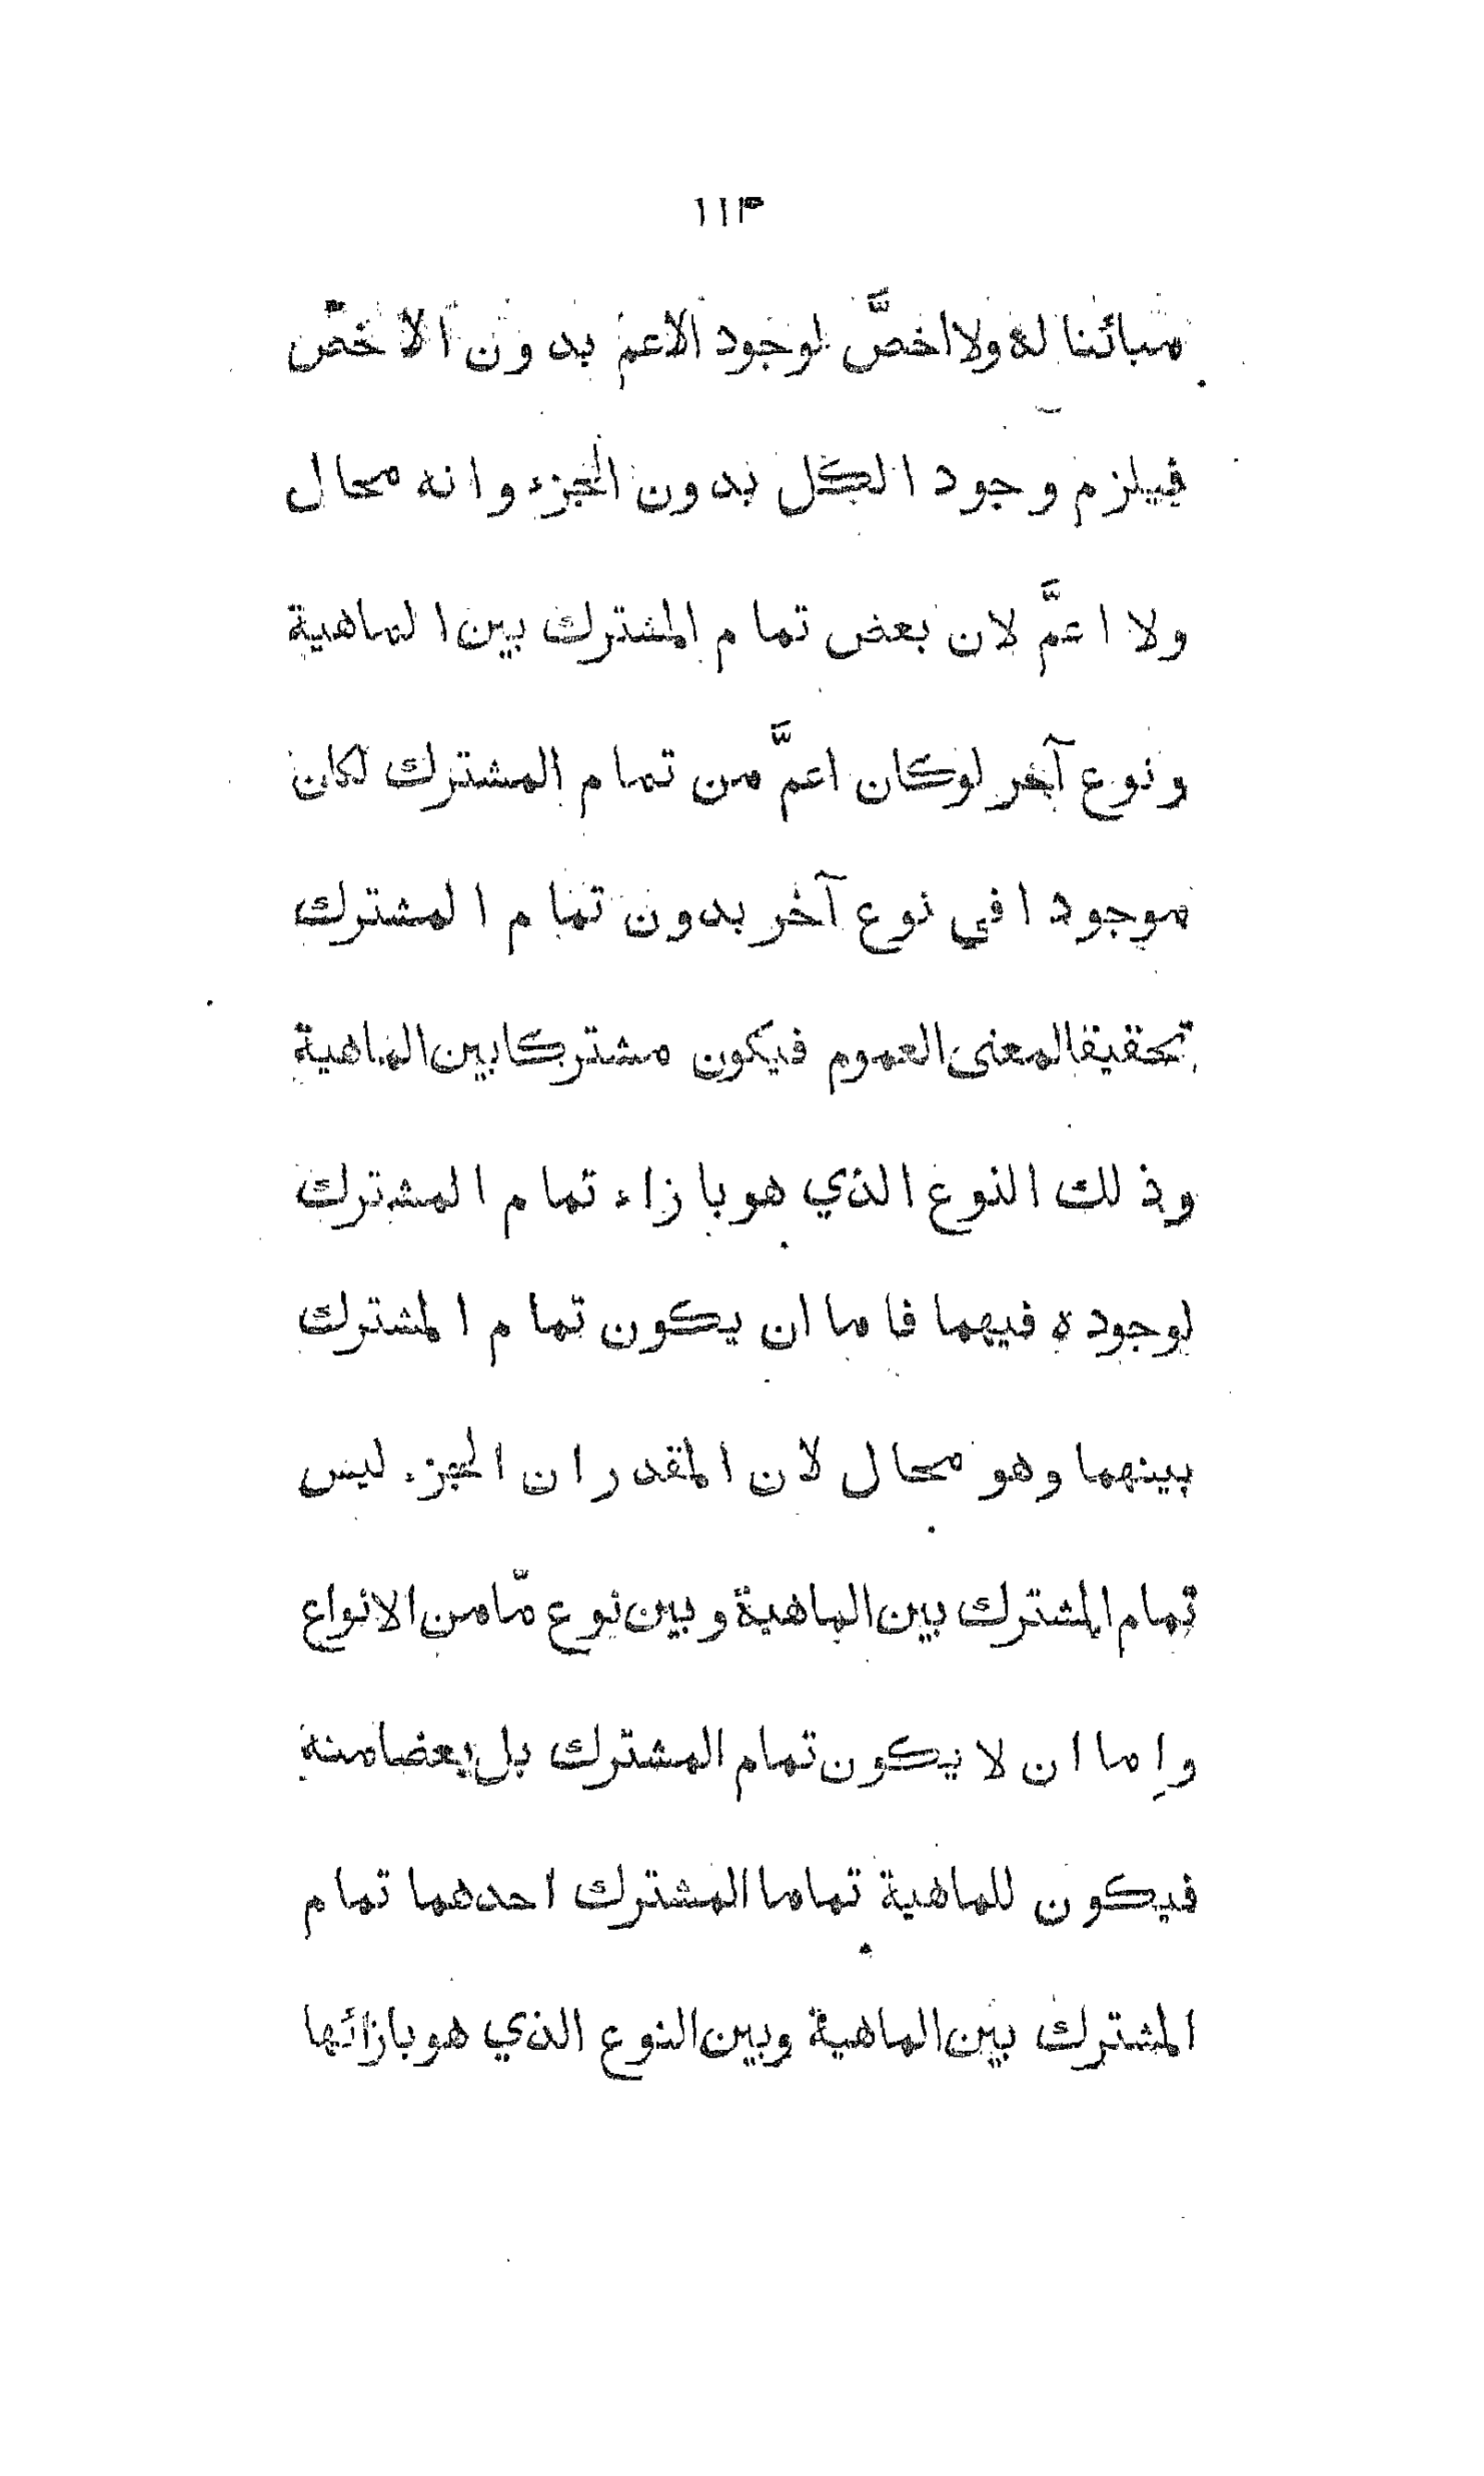 ١١٣
مبائنا له ولا اخصَّ لوجود الاعم بدون الاخص
فيلزم وجود الكل بدون الجزء وانه محال
ولا اعمَّ لان بعض تمام المشترك بين الماهية
ونوع آخر لوكان اعمَّ من تمام المشترك لكان
موجودا في نوع آخر بدون تمام المشترك
تحقيقا لمعنى العموم فيكون مشتركا بين الماهية
وذلك النوع الذي هو بازاء تمام المشترك
لوجوده فيهما فاما ان يكون تمام المشترك
بينهما وهو محال لان المقدر ان الجزء ليس
تمام المشترك بين الماهية وبين نوع مّا من الانواع
وإما ان لا يكون تمام المشترك بل بعضا منه
فيكون للماهية تماما المشترك احدهما تمام
المشترك بين الماهية وبين النوع الذي هو بازائها